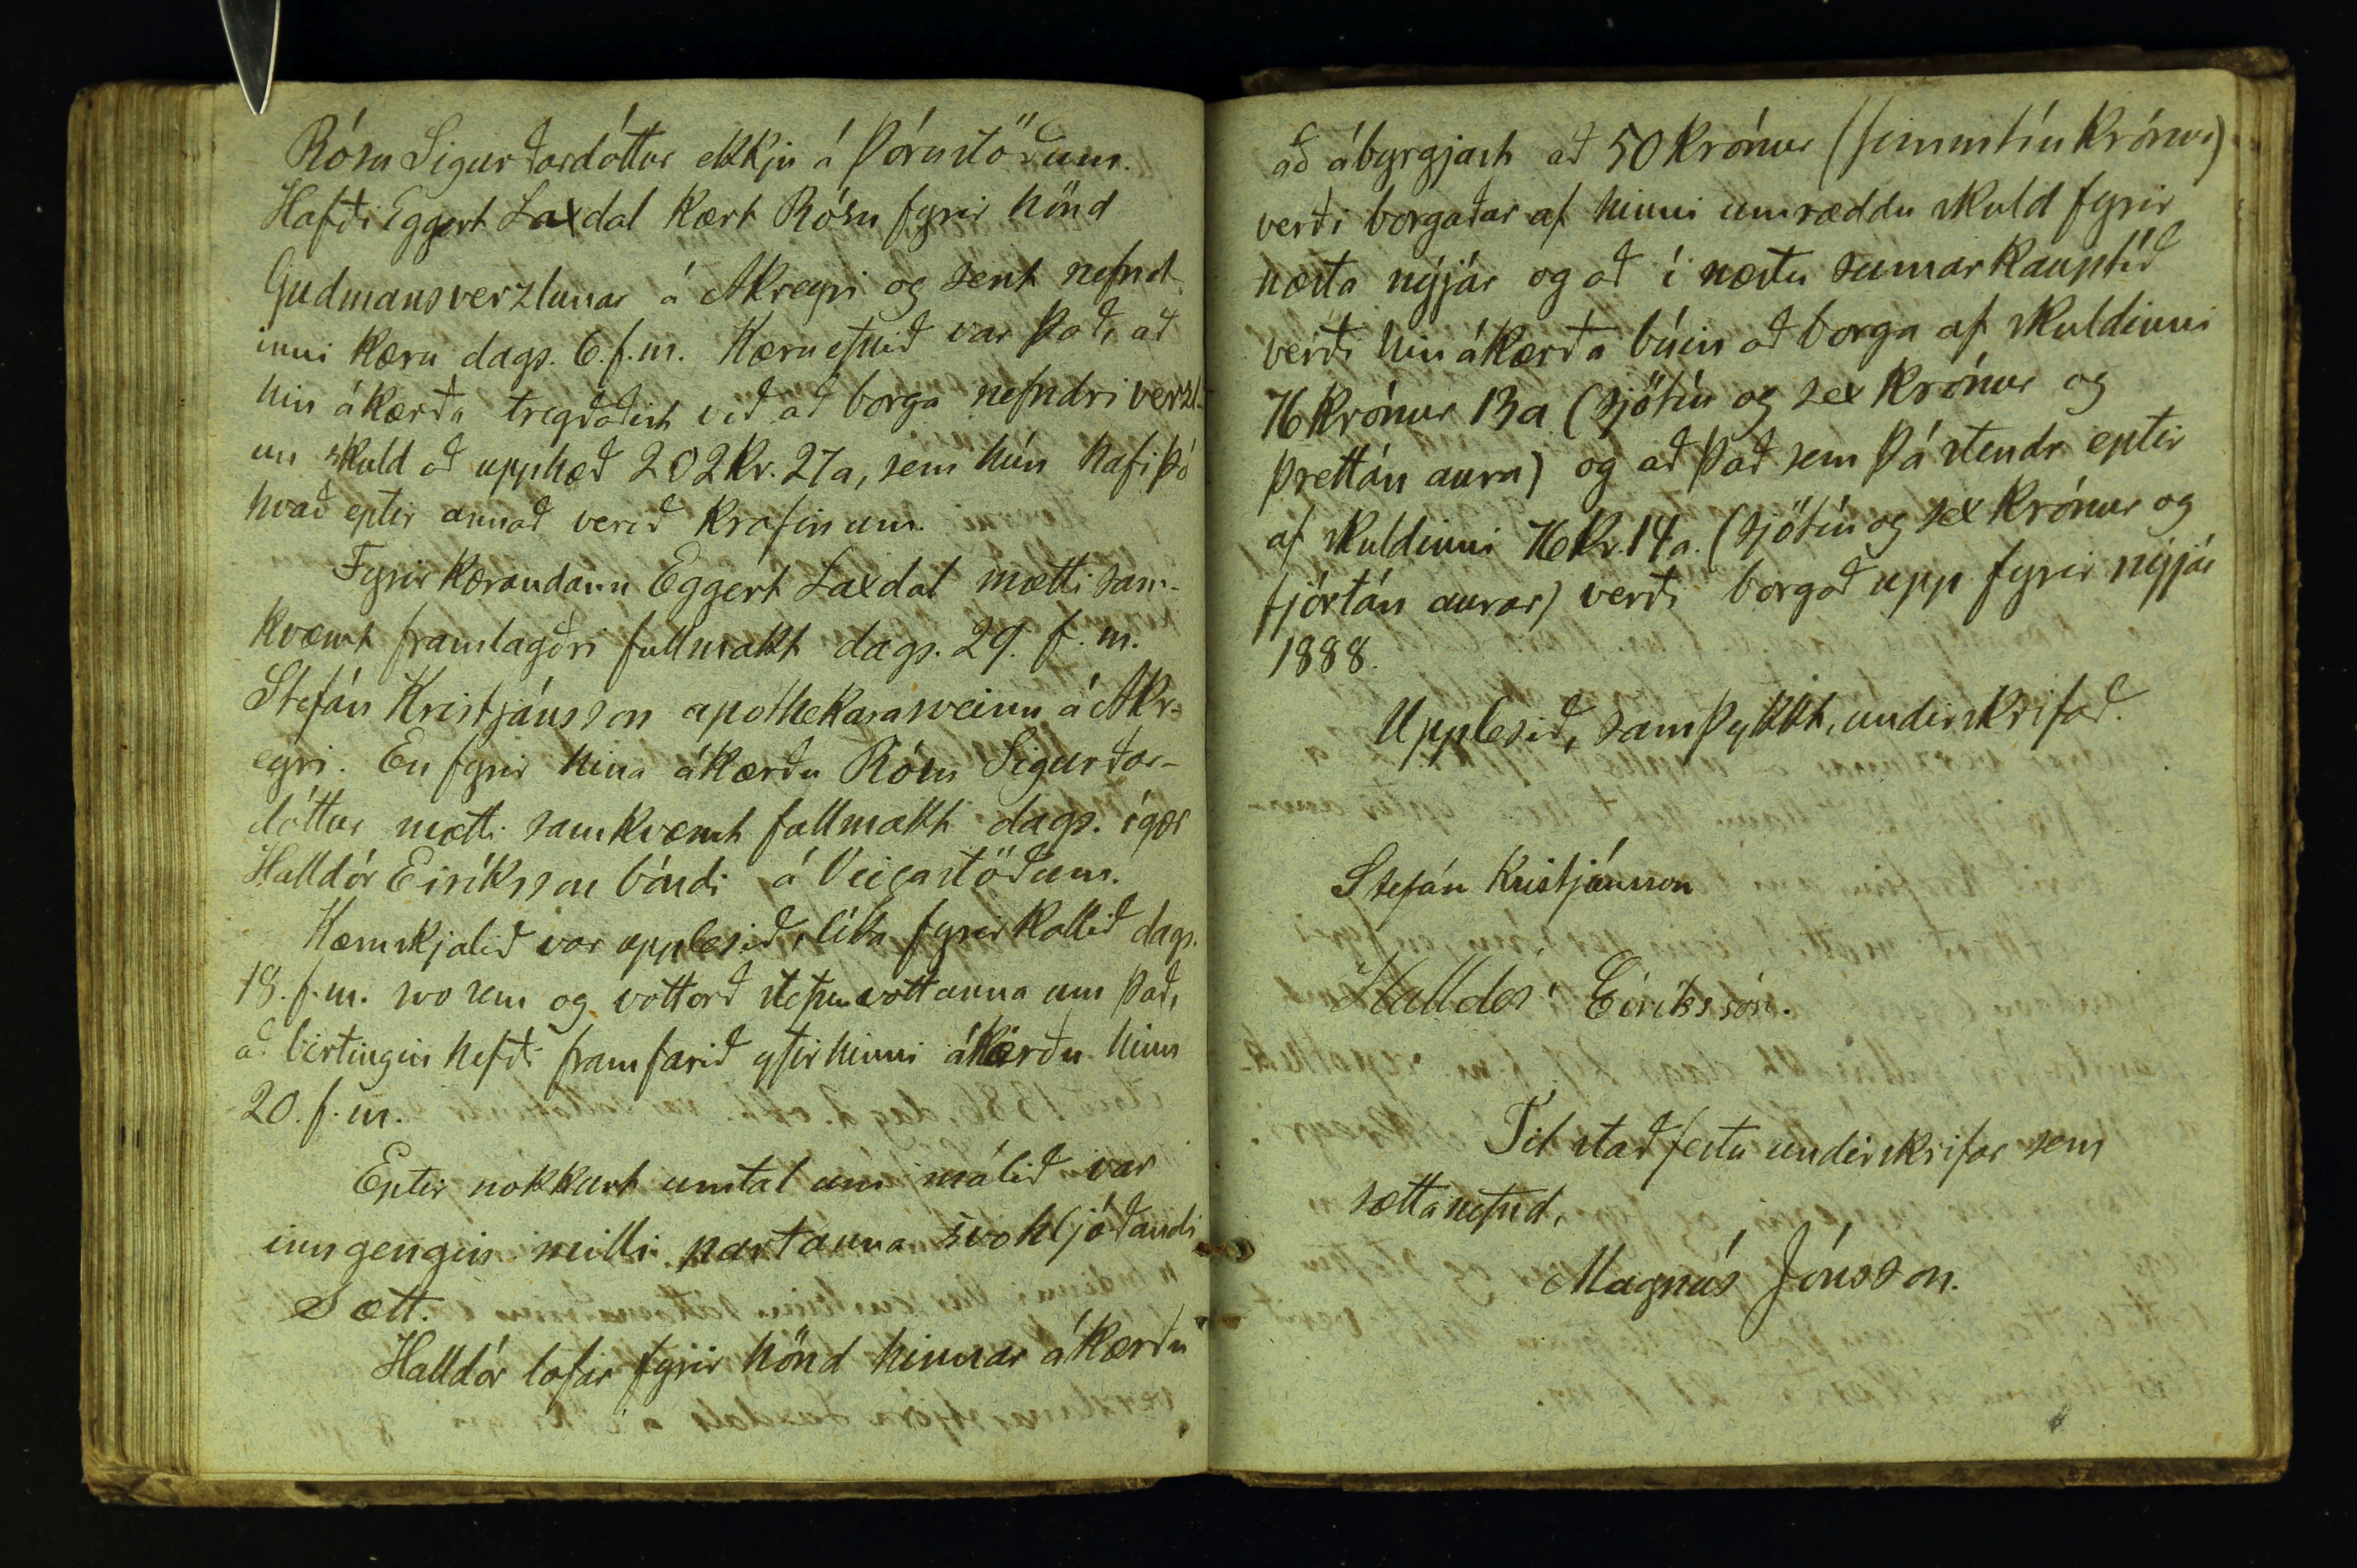 Rósu Sigurðardóttur ekkju á Þórustöðum.
Hafði Eggert Laxdal kært Rósu fyrir hönd
Gudmansverzlunar á Akreyri og sent nefnd-
inni kæru dags. 6. f. m. Kæruefnið var það, að
hin ákærða tregðaðist við að borga nefndri verzl-
un skuld að upphæð 202 kr. 27 a, sem hún hafi þó
hvað eptir annað verið krafin um.
Fyrir kærandann Eggert Laxdal mætti sam-
kvæmt framlagðri fullmakt dags. 29. f. m.
Stefán Kristjánsson apothekarasveinn á Akr-
eyri. En fyrir hina ákærðu Rósu Sigurðar-
dóttur mætti samkvæmt fullmakt dags. í gær
Halldór Eiríksson bóndi á Veigastöðum.
Kæruskjalið var upplesið, líka fyrirkallið dags.
18. f. m. svo sem og vottorð stefnuvottanna um það,
að birtingin hefði framfarið yfir hinni ákærðu hinn
20. f. m.
Eptir nokkurt umtal um málið var
inngengin milli partanna svohljóðandi
Sætt.
Halldór lofar fyrir hönd hinnar ákærðu
að ábyrgjast að 50 krónur (fimmtíu krónur)
verði borgaðar af hinni umræddu skuld fyrir
næsta nýjár og að í næstu sumarkauptíð
verði hin ákærða búin að borga af skuldinni
76 krónur 13 a (sjötíu og sex krónur og
þrettán aura) og að það sem þá stendr eptir
af skuldinni 76 kr. 14 a. (sjötíu og sex krónur og
fjórtán aurar) verði borgað upp fyrir nýjár
1888.
Upplesið, samþykkt, underskrifað.
Stefán Kristjánsson
Halldór Eiríksson.
Til staðfestu underskrifar sem
sættanefnd,
Magnús Jónsson.